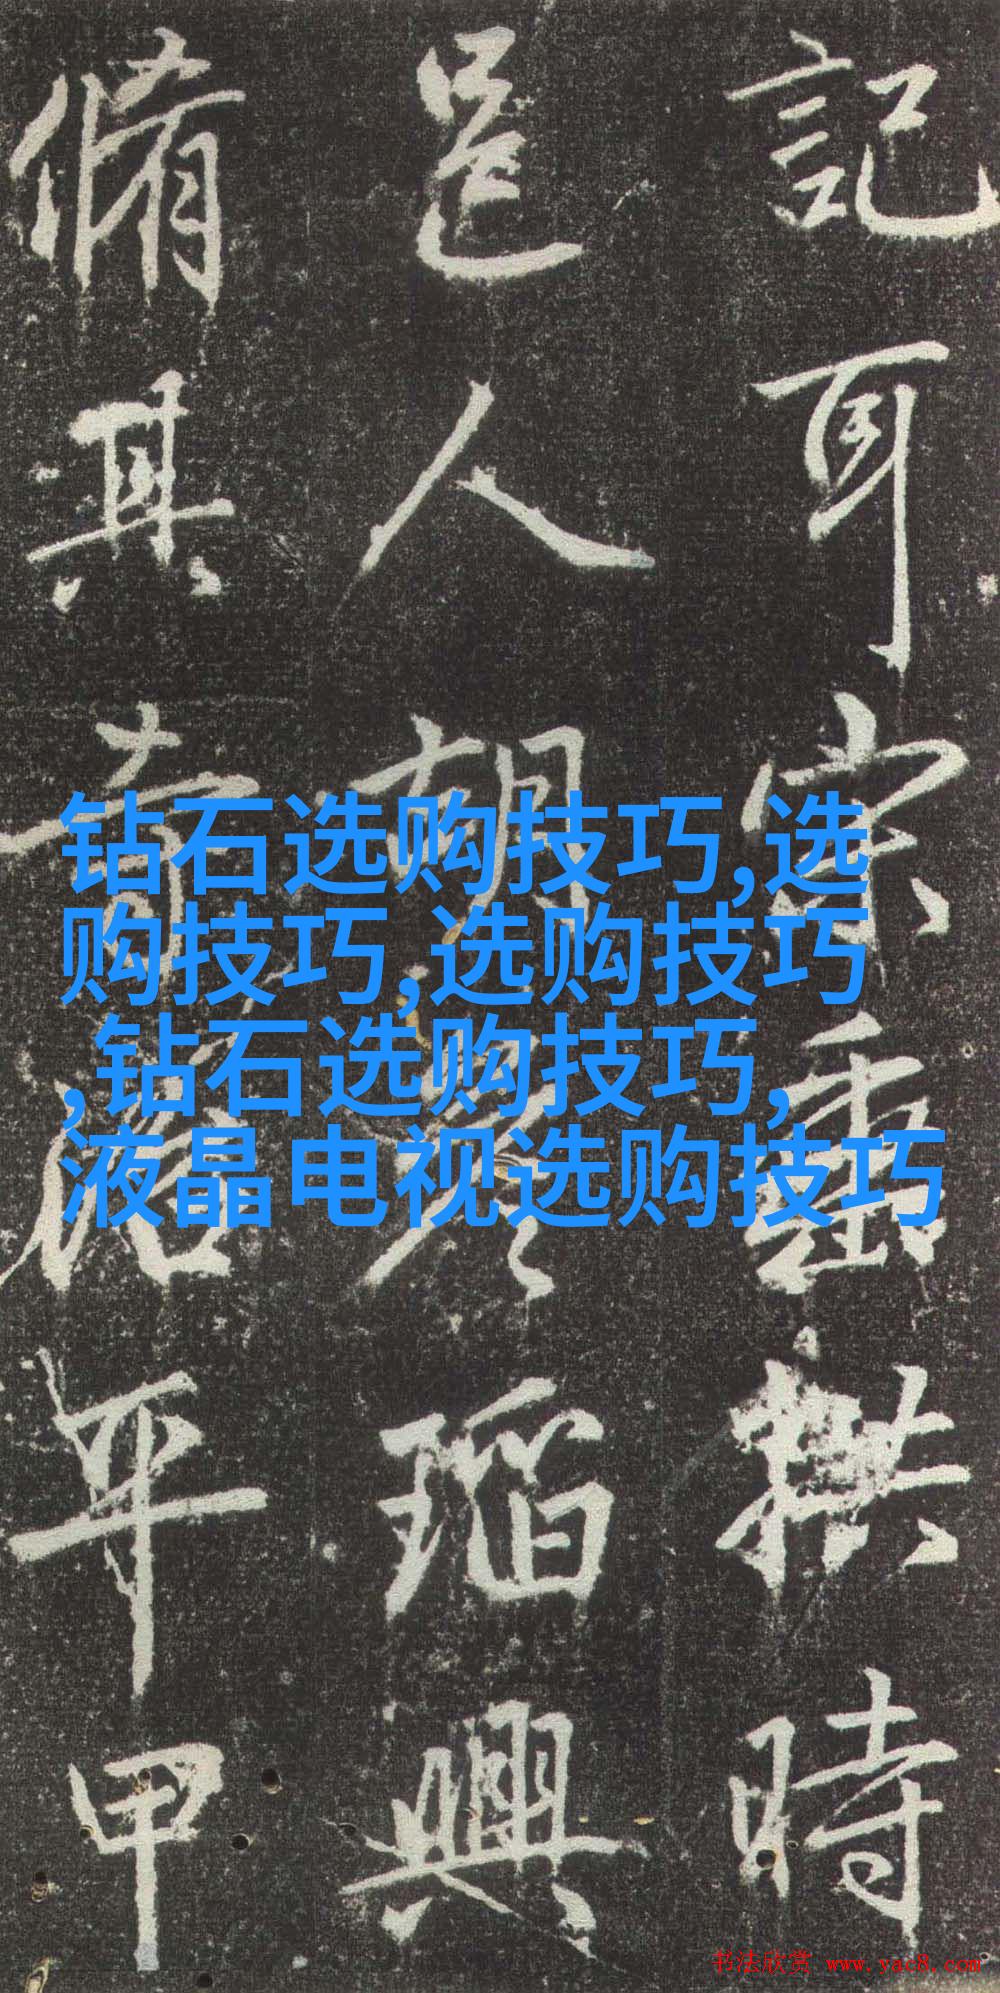 記耳宗垂拱時
邑人胡
瑫興
脩其
平甲
钻石选购技巧,选
购技巧,选购技巧
,钻石选购技巧,
液晶电视选购技巧
书法欣赏 www.yac8.com